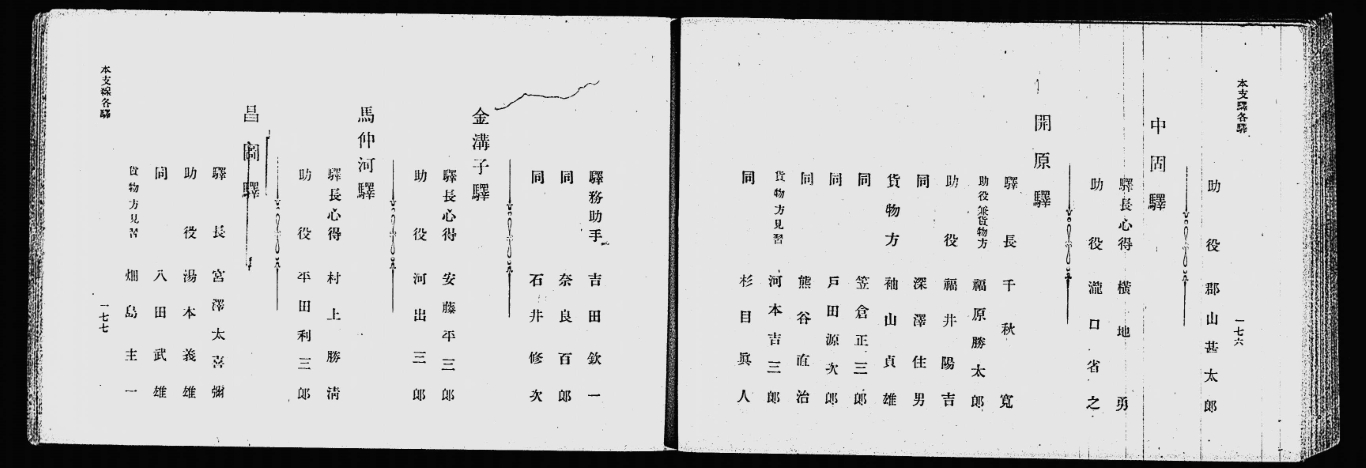 本支線各驛
一七六
助役 郡山甚太郎
中固驛
驛長心得 橫地勇
助役 瀧口省之
開原驛
驛長 千秋寬
助役兼貨物方 福原勝太郎
助役 福井陽吉
同 深澤住男
貨物方 袖山貞雄
同 笠倉正三郎
同 戶田源次郎
同 熊谷直治
貨物方見習 河本吉三郎
同 杉目眞人
驛務助手 吉田欽一
同 奈良百郎
同 石井修次
金溝子驛
驛長心得 安藤平三郎
助役 河出三郎
馬仲河驛
驛長心得 村上勝淸
助役 平田利三郎
昌圖驛
驛長 宮澤太喜彌
助役 湯本義雄
同 八田武雄
貨物方見習 畑島主一
本支線各驛
一七七